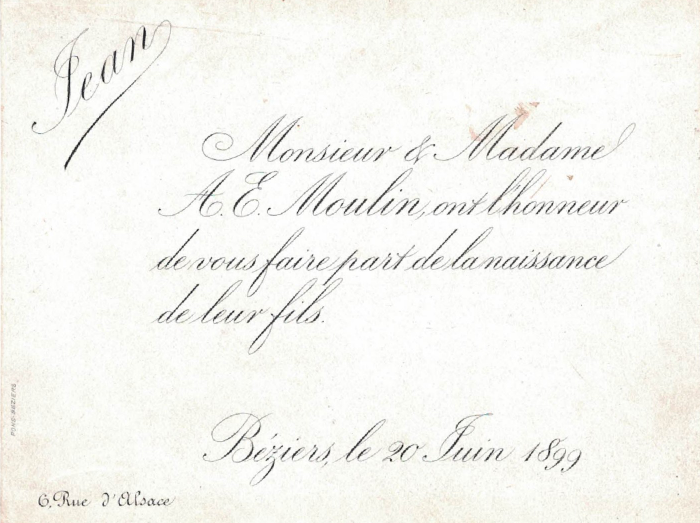 Jean
Monsieur & Madame
A. E. Moulin, ont l'honneur
de vous faire part de la naissance
de leur fils.
Béziers, le 20 Juin 1899
6, Rue d'Alsace